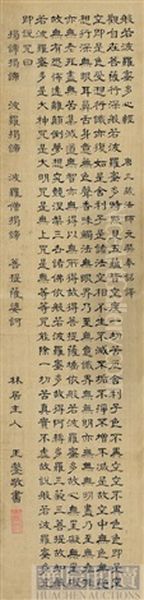 般若波羅蜜多心經 唐三藏法師玄奘奉詔譯
觀自在菩薩行深般若波羅蜜多時照見五蘊皆空度一切苦厄舍利子色不異空空不異色色即是
空空即是色受想行識亦復如是舍利子是諸法空相不生不滅不垢不淨不增不減是故空中無色無受
想行識無眼耳鼻舌身意無色聲香味觸法無眼界乃至無意識界無無明亦無無明盡乃至無老死
亦無老死盡無苦集滅道無智亦無得以無所得故菩提薩埵依般若波羅蜜多故心無罣礙無罣礙
故無有恐怖遠離顛倒夢想究竟涅槃三世諸佛依般若波羅蜜多故得阿耨多羅三藐三菩提故知般
若波羅蜜多是大神咒是大明咒是無上咒是無等等咒能除一切苦真實不虛故說般若波羅蜜多咒
即說咒曰
揭諦揭諦 波羅揭諦 波羅僧揭諦 菩提薩婆訶
林居主人 王鏊敬書